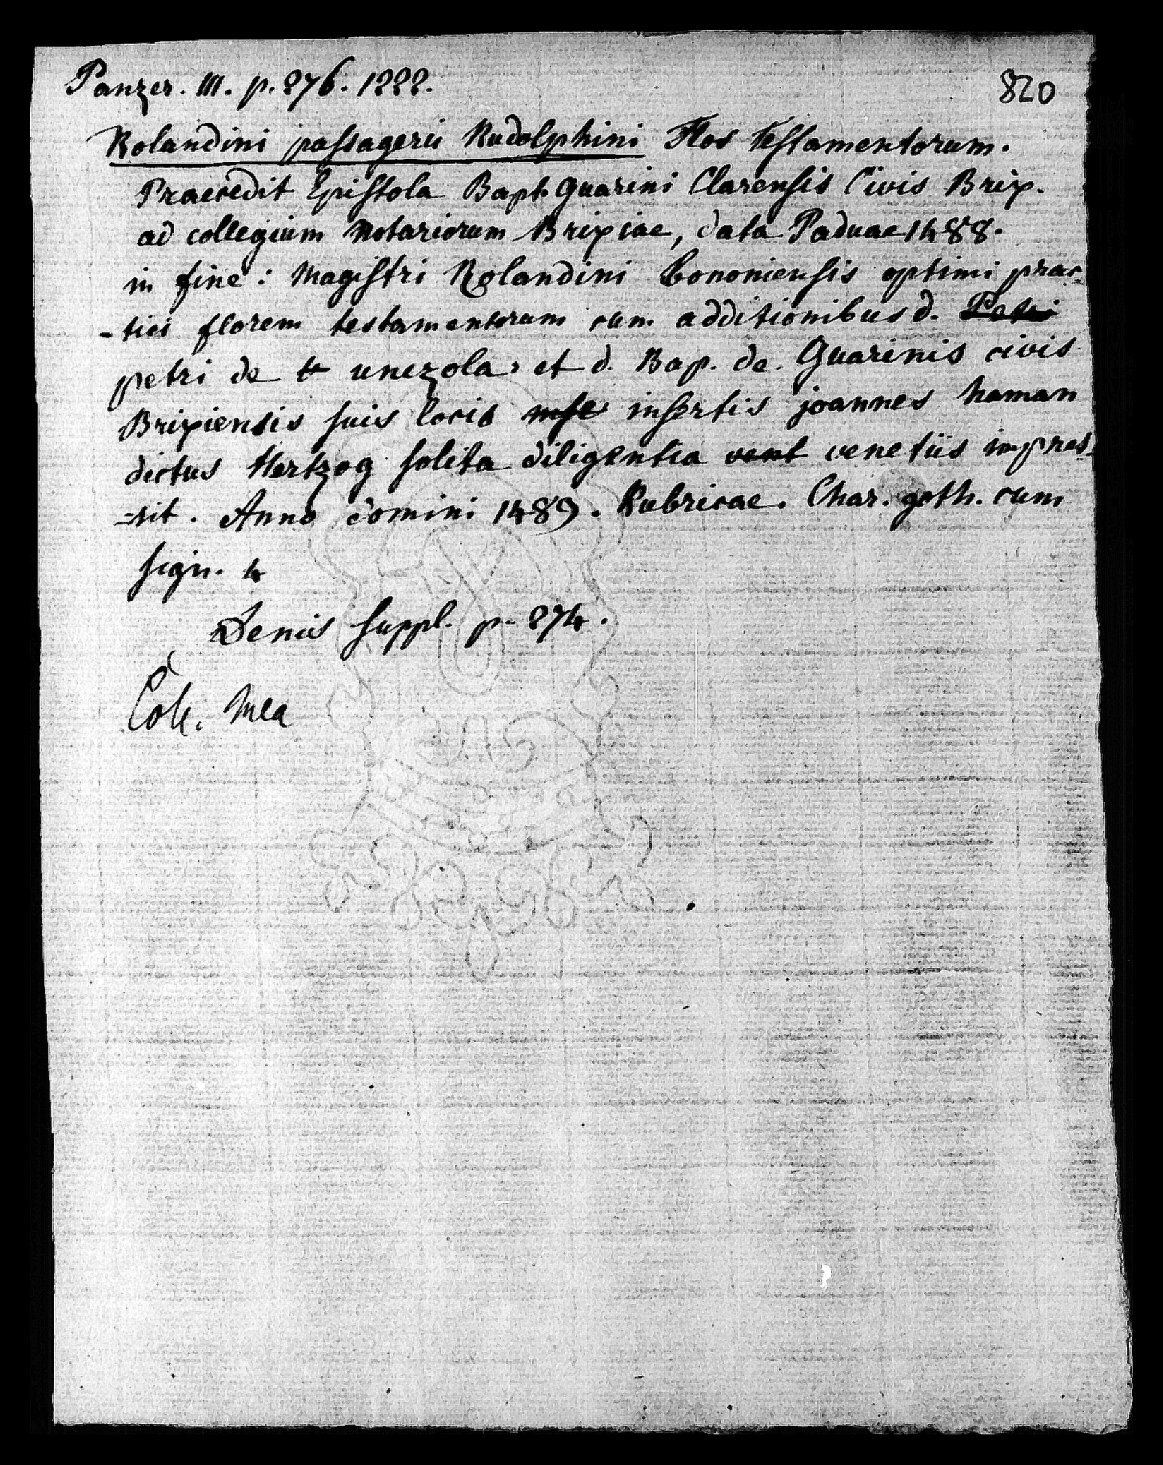 Panzer. III. p. 276. 1222.
820
Rolandini passagerii Rudolphini Flos Testamentorum.
Praecedit Epistola Bapt. Guarini Clarensis Civis Brix.
ad collegium Notariorum Brixiae, data Paduae 1488.
in fine: Magistri Rolandini bononiensis optimi prac-
-tici florem testamentorum cum additionibus d. Petri
petri de unezola, et d. Bap. de Guarinis civis
Brixiensis suis locis insertis joannes haman
dictus Hertzog solita diligentia venetiis impres-
-sit. Anno domini 1489. Rubricae. Char. goth. cum
sign. 4
Denis suppl. p. 274.
Coll. Mea